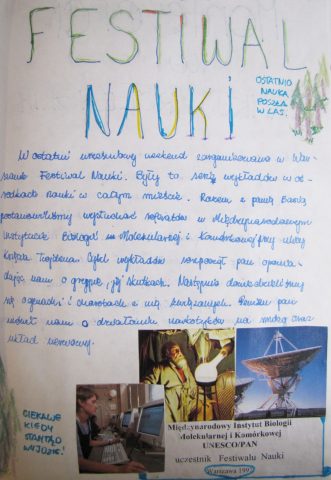 FESTIWAL
NAUKI
OSTATNIO
NAUKA
POSZŁA
W LAS.
W ostatni wrześniowy weekend zorganizowano w War-
szawie Festiwal Nauki. Były to serie wykładów w oś-
rodkach nauki w całym mieście. Razem z panią Basią
postanowiliśmy wysłuchać referatów w Międzynarodowym
Instytucie Biologii Molekularnej i Komórkowej przy ulicy
Księcia Trojdena. Cykl wykładów rozpoczął pan opowia-
dając nam o grypie, jej skutkach. Następnie dowiedzieliśmy
się o genach i chorobach z nią związanych. Później pan
mówił nam o działaniu narkotyków na mózg oraz
układ nerwowy.
CIEKAWE
KIEDY
STAMTĄD
WYJDZIE!
Międzynarodowy Instytut Biologii
Molekularnej i Komórkowej
UNESCO/PAN
uczestnik Festiwalu Nauki
Warszawa 199